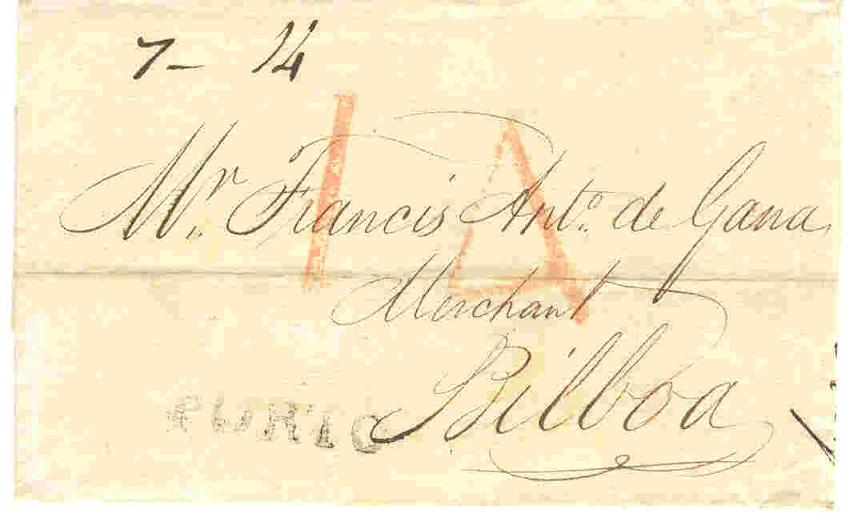 7- 14
14
Mr. Francis Anto. de Gana,
Merchant
Bilboa
PORTO